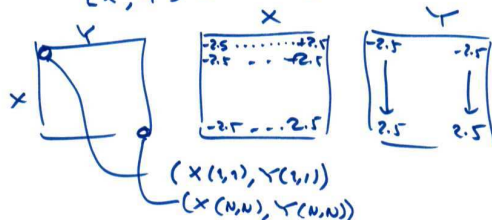 Y
X
X
-2.5 ....... +2.5
-2.5 . . +2.5
-2.5 . . . 2.5
Y
-2.5 -2.5
2.5 2.5
(X(1,1), Y(1,1))
(X(N,N), Y(N,N))